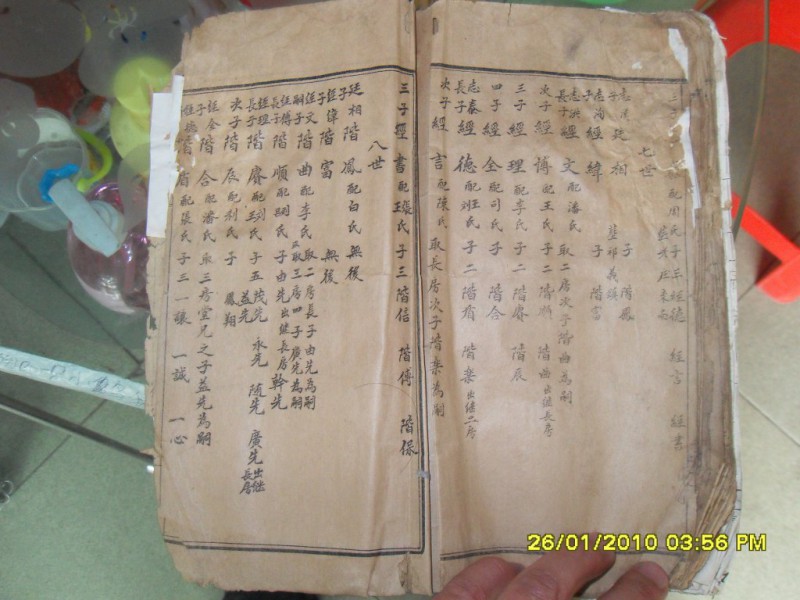 七世
廷相 子 階鳳
經緯 子 階富
長子經文配潘氏 取二房次子階曲為嗣
次子經博配王氏 子二階順 階曲出繼長房
三子經理配李氏 子二階賡 階辰
四子經全配司氏 子階合
志泰長子經德配班氏 子二階眉 階樂出繼二房
次子經言配陳氏 取長房次子階樂為嗣
三子經書配張氏王氏 子三階信 階傅 階保
八世
廷相子階鳳配白氏無後
經緯子階富 無後
經文嗣子階曲配李氏 取二房長子由先為嗣 又取三房四子廣先為嗣
經博長子階順配胡氏 子由先出繼長房 幹先
經理長子階賡配刘氏王氏 子五茂先 益先 永先 随先 廣先出繼長房
次子階辰配刘氏 子 鳳翔
經全子階合配潘氏 取三房堂兄之子益先為嗣
經德 階眉配張氏 子三一讓 一誠 一心
26/01/2010 03:56 PM